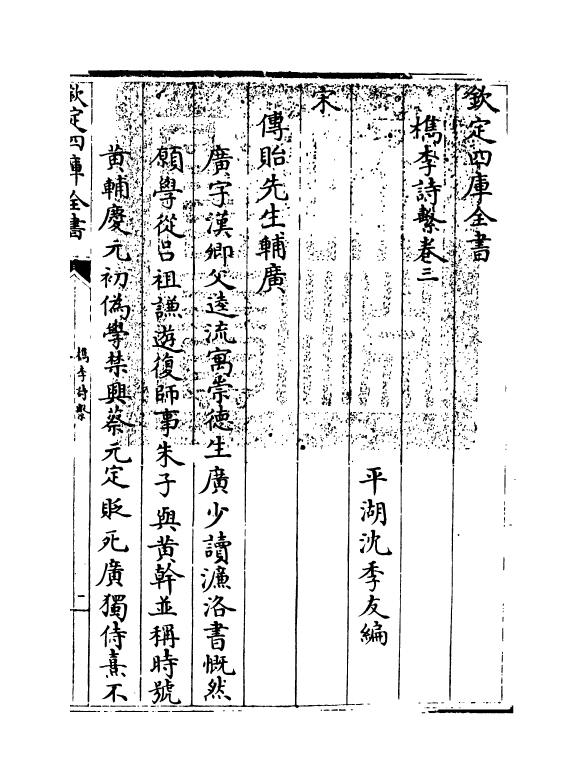 欽定四庫全書
檇李詩繫卷三
平湖沈季友編
宋
傳貽先生輔廣
廣字漢卿父逵流寓崇德生廣少讀濂洛書慨然
願學從呂祖謙遊復師事朱子與黃幹並稱時號
黃輔慶元初偽學禁興蔡元定貶死廣獨侍熹不
欽定四庫全書
檇李詩繫
一